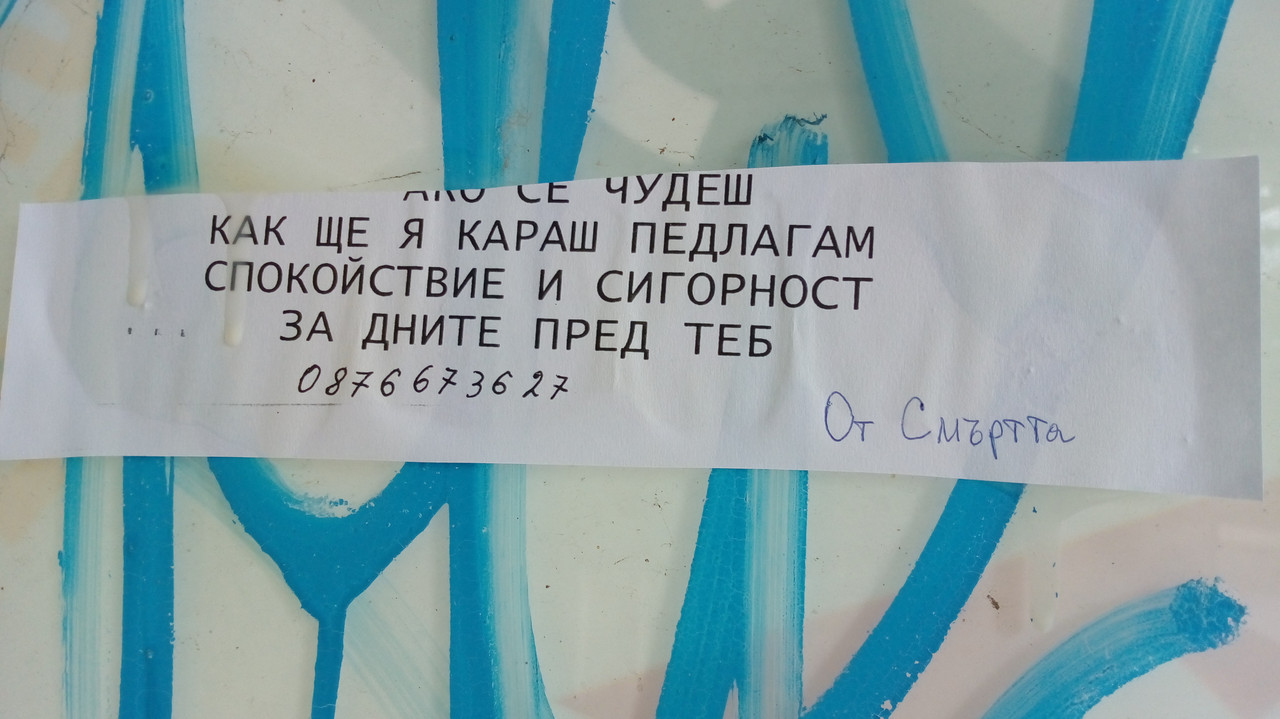 АКО СЕ ЧУДЕШ
КАК ЩЕ Я КАРАШ ПЕДЛАГАМ
СПОКОЙСТВИЕ И СИГОРНОСТ
ЗА ДНИТЕ ПРЕД ТЕБ
0876673627
От Смъртта